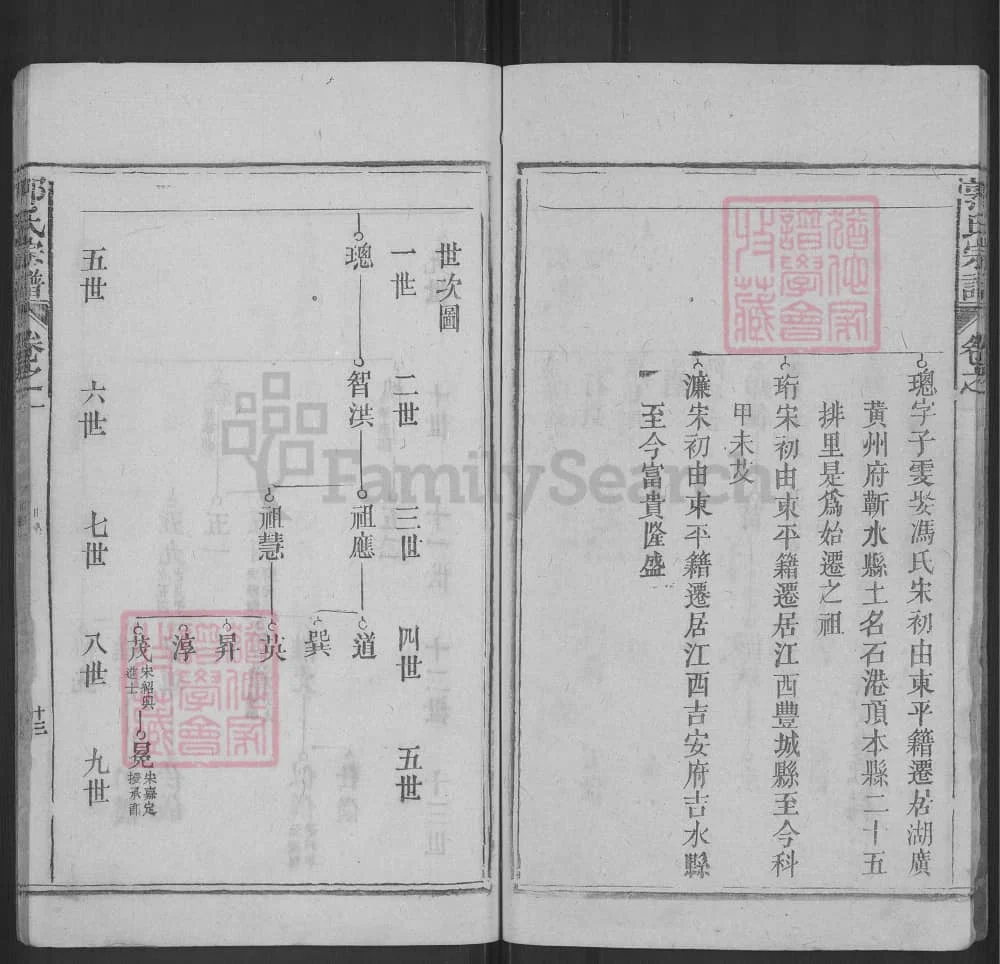 郭氏宗譜
卷之一
璁字子雯娶馮氏宋初由東平籍遷居湖廣
黃州府蘄水縣土名石港頂本縣二十五
排里是爲始遷之祖
珩宋初由東平籍遷居江西豐城縣至今科
甲未艾
濂宋初由東平籍遷居江西吉安府吉水縣
至今富貴隆盛
世次圖
一世 二世 三世 四世 五世
璁 智洪 祖應 道
巽
祖慧 英
昇
淳
茂 宋紹興進士 冕 宋嘉定授承節
五世 六世 七世 八世 九世
郭氏宗譜
卷之一
十三
譜學會
收藏
譜學會
收藏
FamilySearch